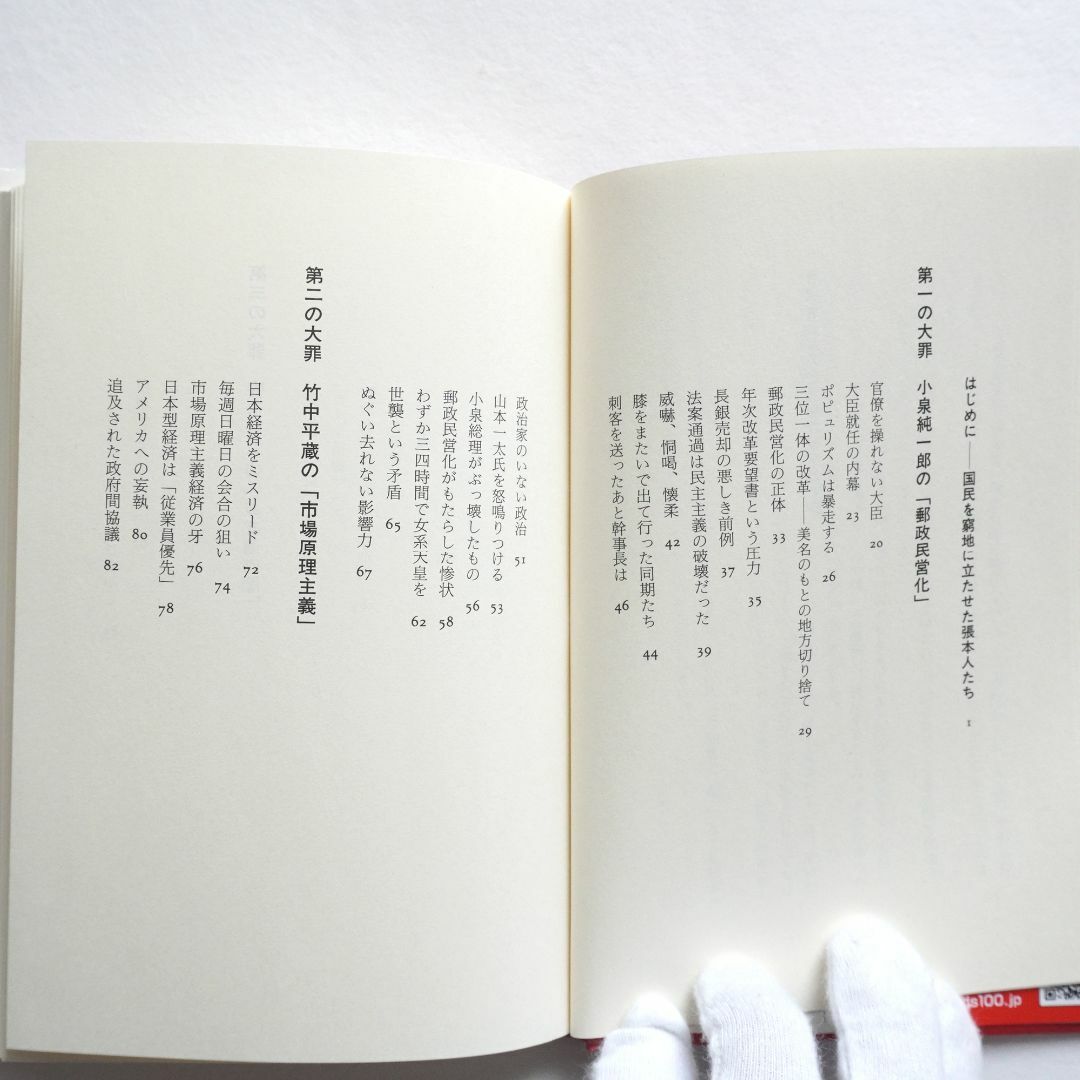 はじめに――国民を窮地に立たせた張本人たち 1
第一の大罪 小泉純一郎の「郵政民営化」
官僚を操れない大臣 20
大臣就任の内幕 23
ポピュリズムは暴走する 26
三位一体の改革――美名のもとの地方切り捨て 29
郵政民営化の正体 33
年次改革要望書という圧力 35
長銀売却の悪しき前例 37
法案通過は民主主義の破壊だった 39
威嚇、恫喝、懐柔 42
膝をまたいで出て行った同期たち 44
刺客を送ったあと幹事長は 46
政治家のいない政治 51
山本一太氏を怒鳴りつける 53
小泉総理がぶっ壊したもの 56
郵政民営化がもたらした惨状 58
わずか三四時間で女系天皇を 62
世襲という矛盾 65
ぬぐい去れない影響力 67
第二の大罪 竹中平蔵の「市場原理主義」
日本経済をミスリード 72
毎週日曜日の会合の狙い 74
市場原理主義経済の牙 76
日本型経済は「従業員優先」 78
アメリカへの妄執 80
追及された政府間協議 82
s100.jp